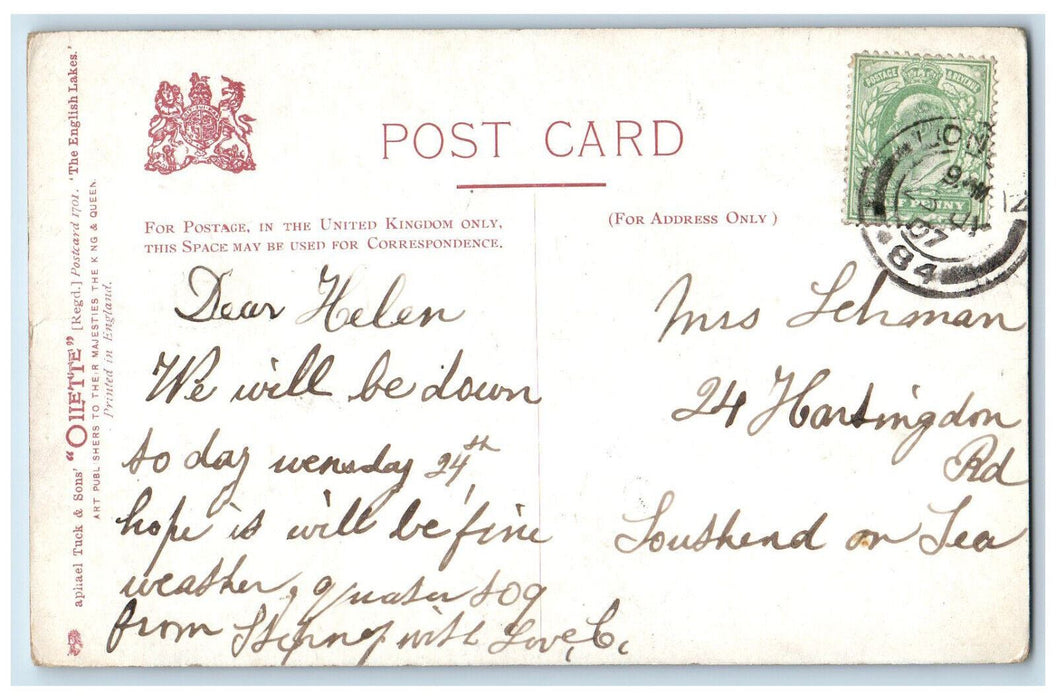 POST CARD
FOR POSTAGE, IN THE UNITED KINGDOM ONLY,
THIS SPACE MAY BE USED FOR CORRESPONDENCE.
(FOR ADDRESS ONLY)
Dear Helen
We will be down
to day wensday 24th
hope is will be fine
weather, quater to 9
from Stepney with Love, C.
Mrs Lehman
24 Hartingdon
Rd
Southend on Sea
aphael Tuck & Sons' "OILETTE" [Regd.] Postcard 1701. 'The English Lakes.'
ART PUBLISHERS TO THEIR MAJESTIES THE KING & QUEEN.
Printed in England.
POSTAGE & REVENUE
F PENNY
LON
07
84